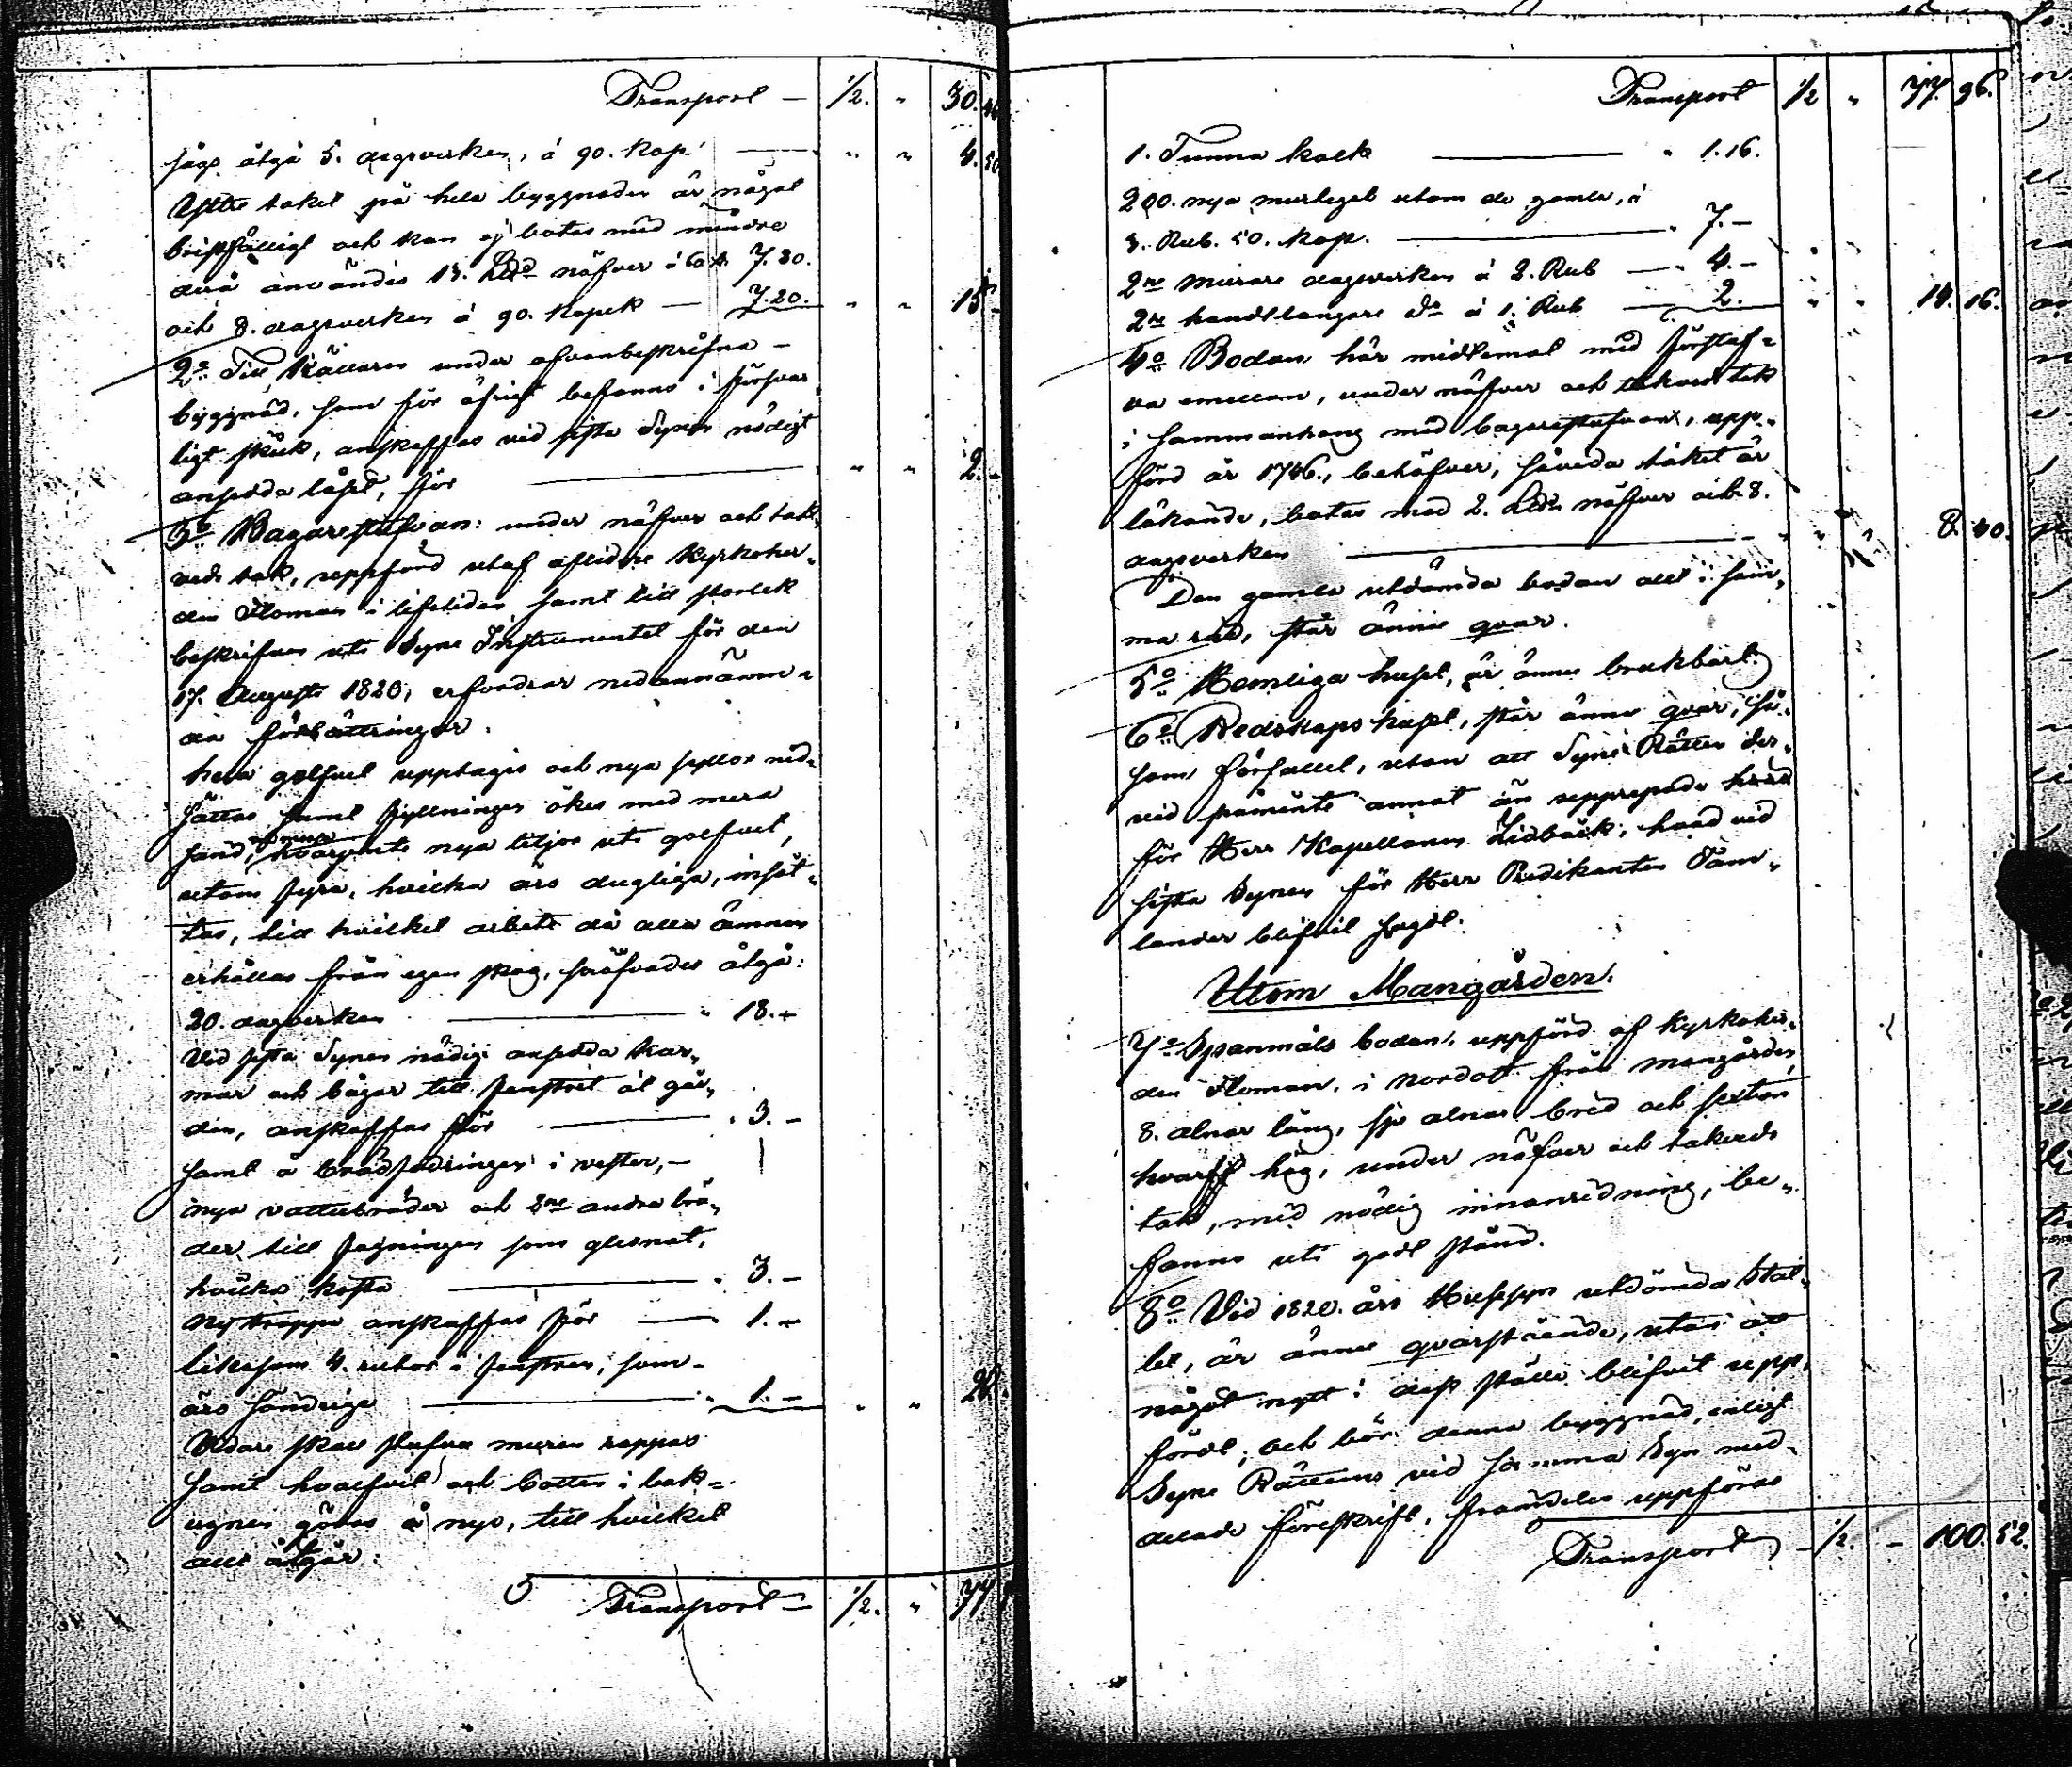 Transport — 1/2. „ 30.
åtgå 5. dagsverken, á 90. Kop. — „ „ 4. 50
Yttre taket på hela byggnaden är något
bristfälligt och kan ej botas med mindre
än användes 13. näfver á 60 k. 7.80.
och 8. dagsverken á 90. Kopek — 7.20. „ „ 15.-
2o Till Källaren under ofvanbeskrifna -
byggnad, som för öfrigt befanns i försvar-
ligt skick, anskaffas vid sista Synen nödigt
ansedda låset, för — „ „ 2.-
3o Bagarestufvan: under näfver och tak-
veds tak, uppförd utaf aflidne Kyrkoher-
den Floman i lifstiden samt till storlek
beskrifven uti Syne Instrumentet för den
17. Augusti 1820, erfordrar nedannämn-
da förbättringar.
hela golfvet upptages och nya syllor ned-
sättas samt fyllningen ökes med mera
sand, nya tiljor uti golfvet,
utom fyra, hvilka äro dugliga, insät-
tas, till hvilket arbete då alla ämnen
erhållas från egen skog, åtgå:
20. dagsverken — „ 18.-
Vid sista Synen nödige ansedda kar-
mar och bågar till fenstret åt går-
den, anskaffas för — „ 3.-
samt å brädfodringen i vester, -
nya vattubräder och 2ne andra brä-
der till som glesnat,
hvilka kosta — „ 3.-
Ny trappa anskaffas för — „ 1.-
likasom 4. rutor i fenstren, som -
äro söndrige — „ 1.- „ „ 26.
Vidare skall stufvu muren rappas
samt hvalfvet och botten i bak-
ugnen göras å nyo, till hvilket
allt åtgår:
Transport — 1/2. „ 77
Transport 1/2 „ 77. 96.
1. Tunna kalk — „ 1.16.
200. nya murtegel utom de gamla, á
3. Rub. 50. Kop. — „ 7.-
2ne murare dagsverken á 2. Rub — „ 4.-
2ne handtlangare do á 1. Rub — 2. „ „ 14. 16.
4o Bodan här midtemot med förstuf-
va emellan, under näfver och takveds tak
i sammanhang med bagarestufvan, upp-
förd år 1746., behöfver, såvida taket är
läkande, botas med 2. näfver och 8.
dagsverken — „ „ 8. 40.
Den gamla utdömda bodan allt i sam-
ma rad, står ännu qvar.
5o Hemliga huset, är ännu brukbart.
6o Redskaps huset, står ännu qvar, så-
som förfallet, utan att Syne Rätten der-
vid påminte annat än upprepade
för Herr Kapellanen Lidbäck, hvad vid
sista Synen för Herr Predikanten
lander blifvit sagdt.
Utom Mangården.
7o Spanmåls bodan, uppförd af Kyrkoher-
den Floman, i nordost från mangården,
8. alnar lång, sju alnar bred och sexton
hvarf hög, under näfver och takveds
tak, med nödig innanredning, be-
fanns uti godt stånd.
8o Vid 1820. års Husesyn utdömda Stal-
let, är ännu qvarstående, utan att
något nytt i dess ställe blifvit upp-
fördt; och bör denna byggnad, enligt
Syne Rättens vid samma Syn med-
delade föreskrift, framdeles uppföras
Transport — 1/2. — 100. 52.